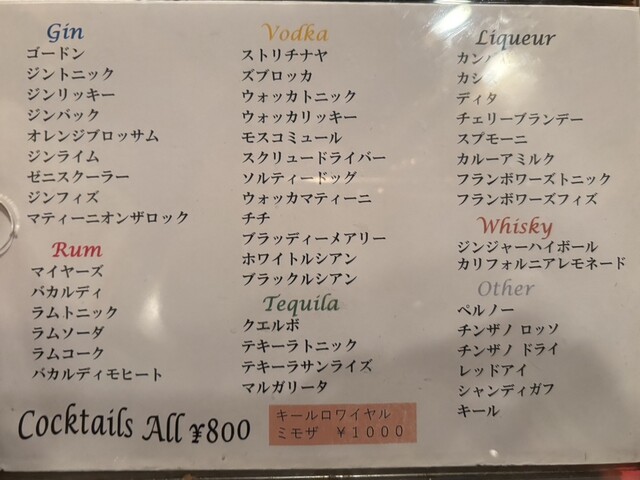 Gin
ゴードン
ジントニック
ジンリッキー
ジンバック
オレンジブロッサム
ジンライム
ゼニスクーラー
ジンフィズ
マティーニオンザロック
Rum
マイヤーズ
バカルディ
ラムトニック
ラムソーダ
ラムコーク
バカルディモヒート
Vodka
ストリチナヤ
ズブロッカ
ウォッカトニック
ウォッカリッキー
モスコミュール
スクリュードライバー
ソルティードッグ
ウォッカマティーニ
チチ
ブラッディーメアリー
ホワイトルシアン
ブラックルシアン
Tequila
クエルボ
テキーラトニック
テキーラサンライズ
マルガリータ
Liqueur
ディタ
チェリーブランデー
スプモーニ
カルーアミルク
フランボワーズトニック
フランボワーズフィズ
Whisky
ジンジャーハイボール
カリフォルニアレモネード
Other
ペルノー
チンザノ ロッソ
チンザノ ドライ
レッドアイ
シャンディガフ
キール
Cocktails All ¥800
キールロワイヤル
ミモザ ¥1000